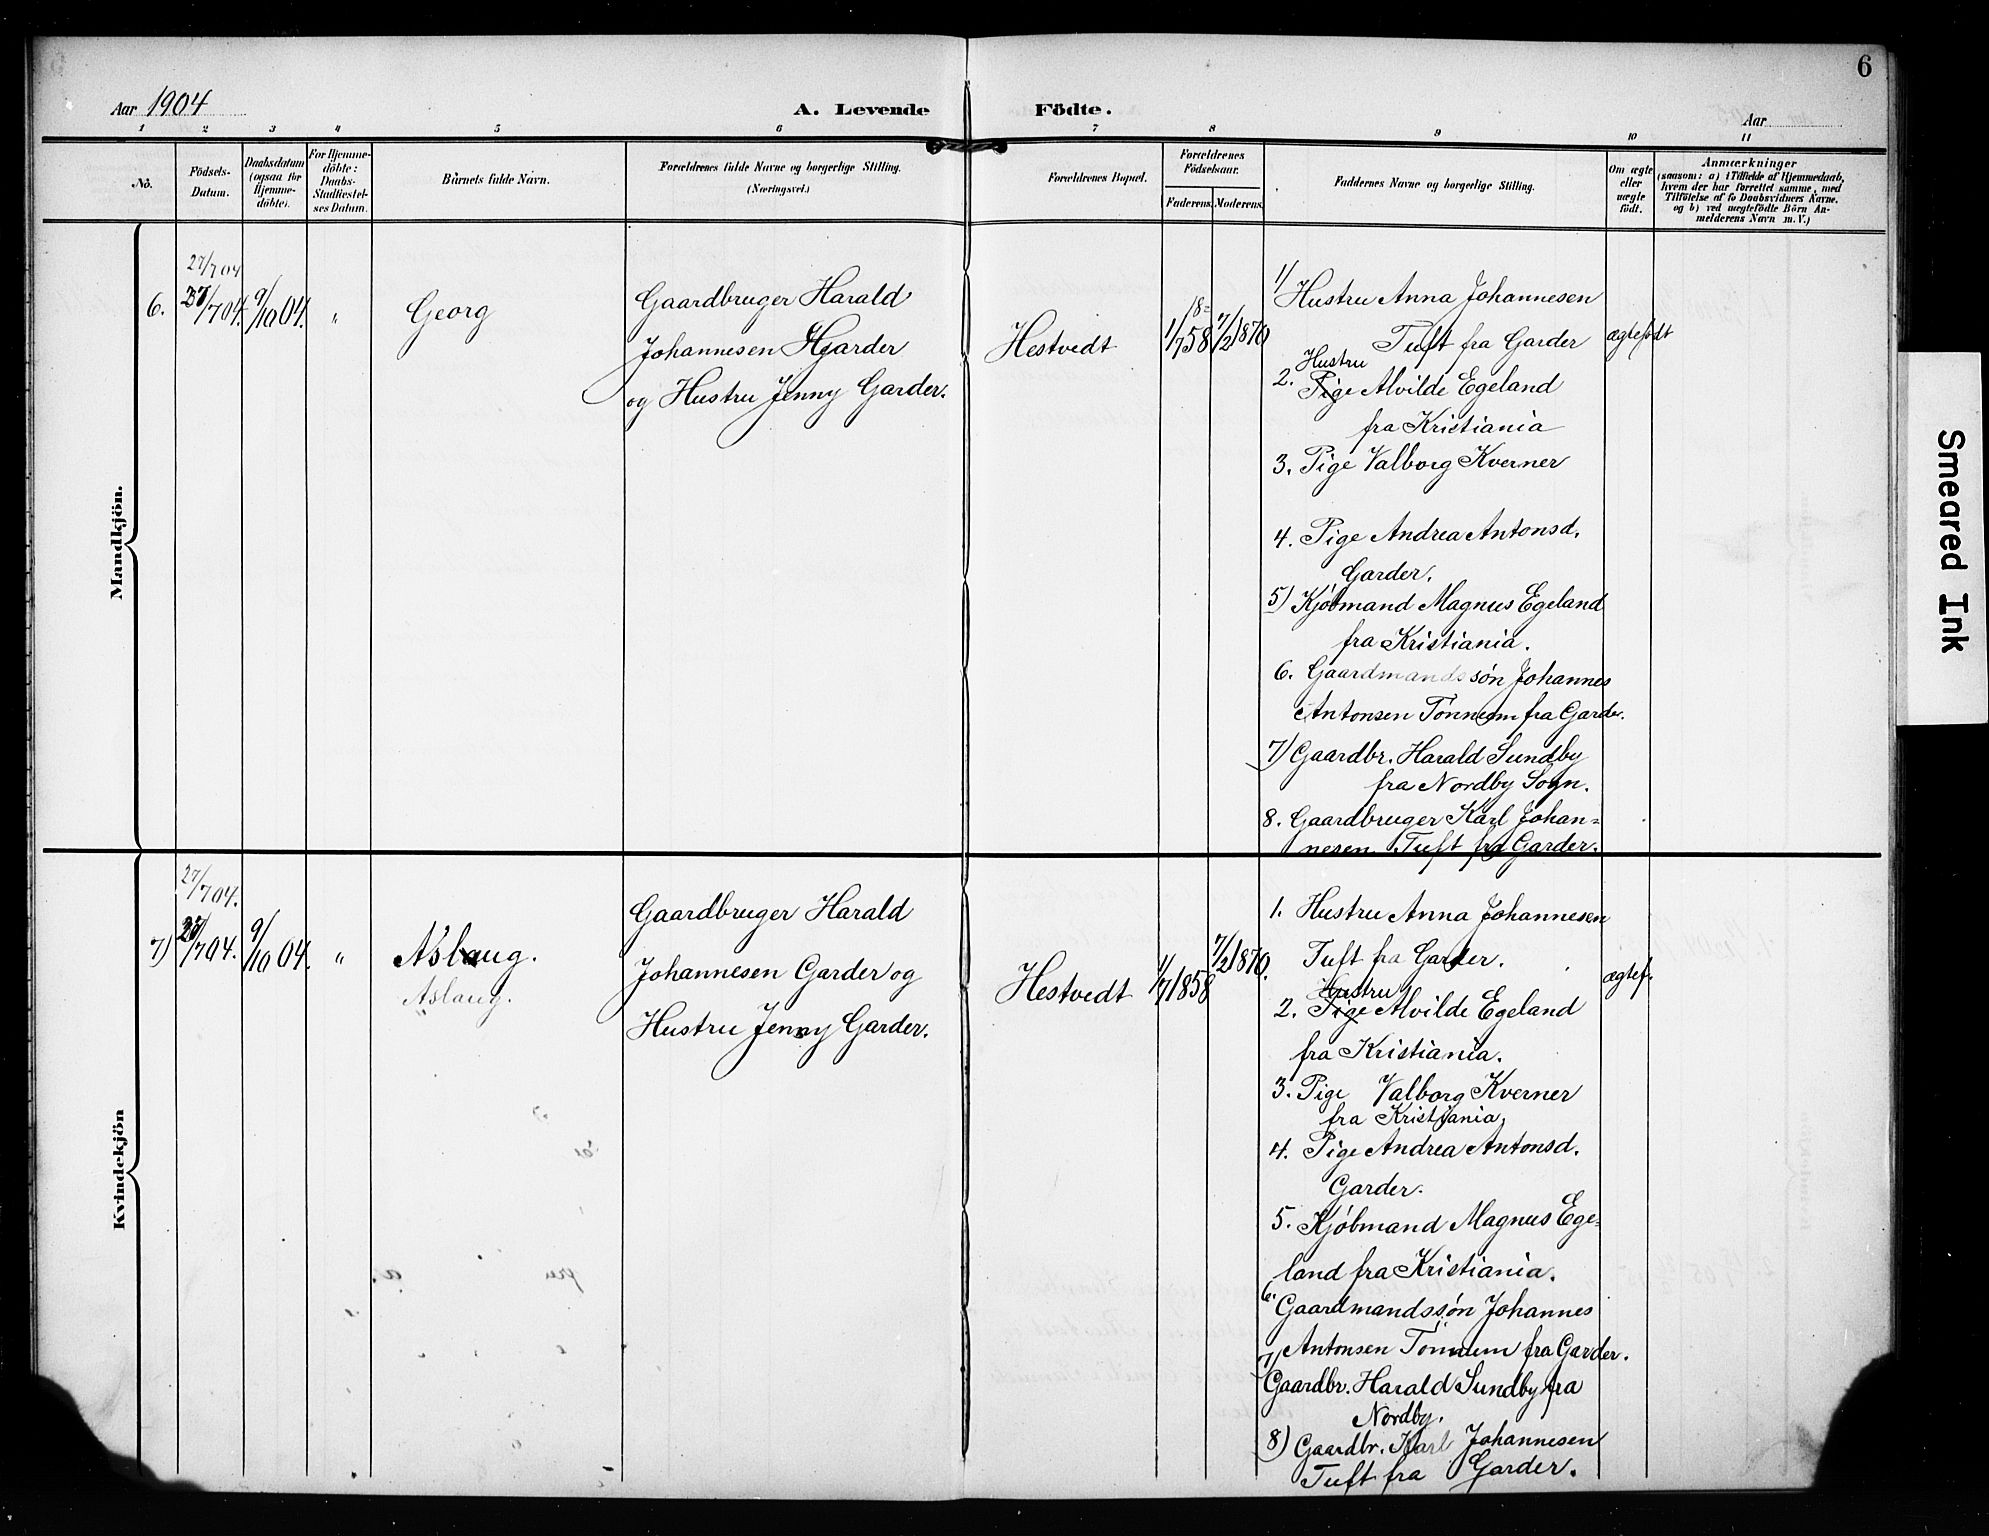 6
Aar 1904
A. Levende Födte.
Aar
1 2 3 4 5 6 7 8 9 10 11
No.
Födsels-
Datum.
Daabsdatum
(ogsaa for
Hjemme-
döbte).
For Hjemme-
döbte:
Daabs-
Stadfæstel-
ses Datum.
Barnets fulde Navn.
Forældrenes fulde Navne og borgerlige Stilling.
(Næringsvei.)
Forældrenes Bopæl.
Forældrenes
Födselsaar.
Faderens. Moderens.
Faddernes Navne og borgerlige Stilling.
Om ægte
eller
uægte
födt.
Anmærkninger
(saasom: a) i Tilfælde af Hjemmedaab,
hvem der har forrettet samme, med
Tilføielse af to Daabsvidners Navne,
og b) ved uægtefödte Börn An-
melderens Navn m. V.)
Mandkjön.
27/7 04
6.
27/7 04.
9/10 04.
"
Georg
Gaardbruger Harald
Johannesen Garder
og Hustru Jenny Garder.
Hestvedt
18=
1/7 58
7/2 1870
1) Hustru Anna Johannesen
Tuft fra Garder
Hustru
2. Pige Alvilde Egeland
fra Kristiania
3. Pige Valborg Kverner
4. Pige Andrea Antonsd.
Garder.
5) Kjöbmand Magnus Egeland
fra Kristiania.
6. Gaardmandssön Johannes
Antonsen Tönnum fra Garder.
7) Gaardbr. Harald Sundby
fra Nordby Sogn.
8. Gaardbruger Karl Johan=
nesen Tuft fra Garder.
ægtefödt
Kvindekjön
27/7 04.
7)
27/7 04.
9/10 04.
"
Aslaug.
Aslaug.
Gaardbruger Harald
Johannesen Garder og
Hustru Jenny Garder.
Hestvedt
1/7 1858
7/2 1870.
1. Hustru Anna Johannesen
Tuft fra Garder.
Hustru
2. Pige Alvilde Egeland
fra Kristiania.
3. Pige Valborg Kverner
fra Kristiania.
4. Pige Andrea Antonsd.
Garder.
5. Kjöbmand Magnus Ege=
land fra Kristiania.
6. Gaardmandssön Johannes
Antonsen Tönnum fra Garder.
7) Gaardbr. Harald Sundby fra
Nordby.
8) Gaardbr. Karl Johannesen
Tuft fra Garder.
ægtef.
Smeared Ink